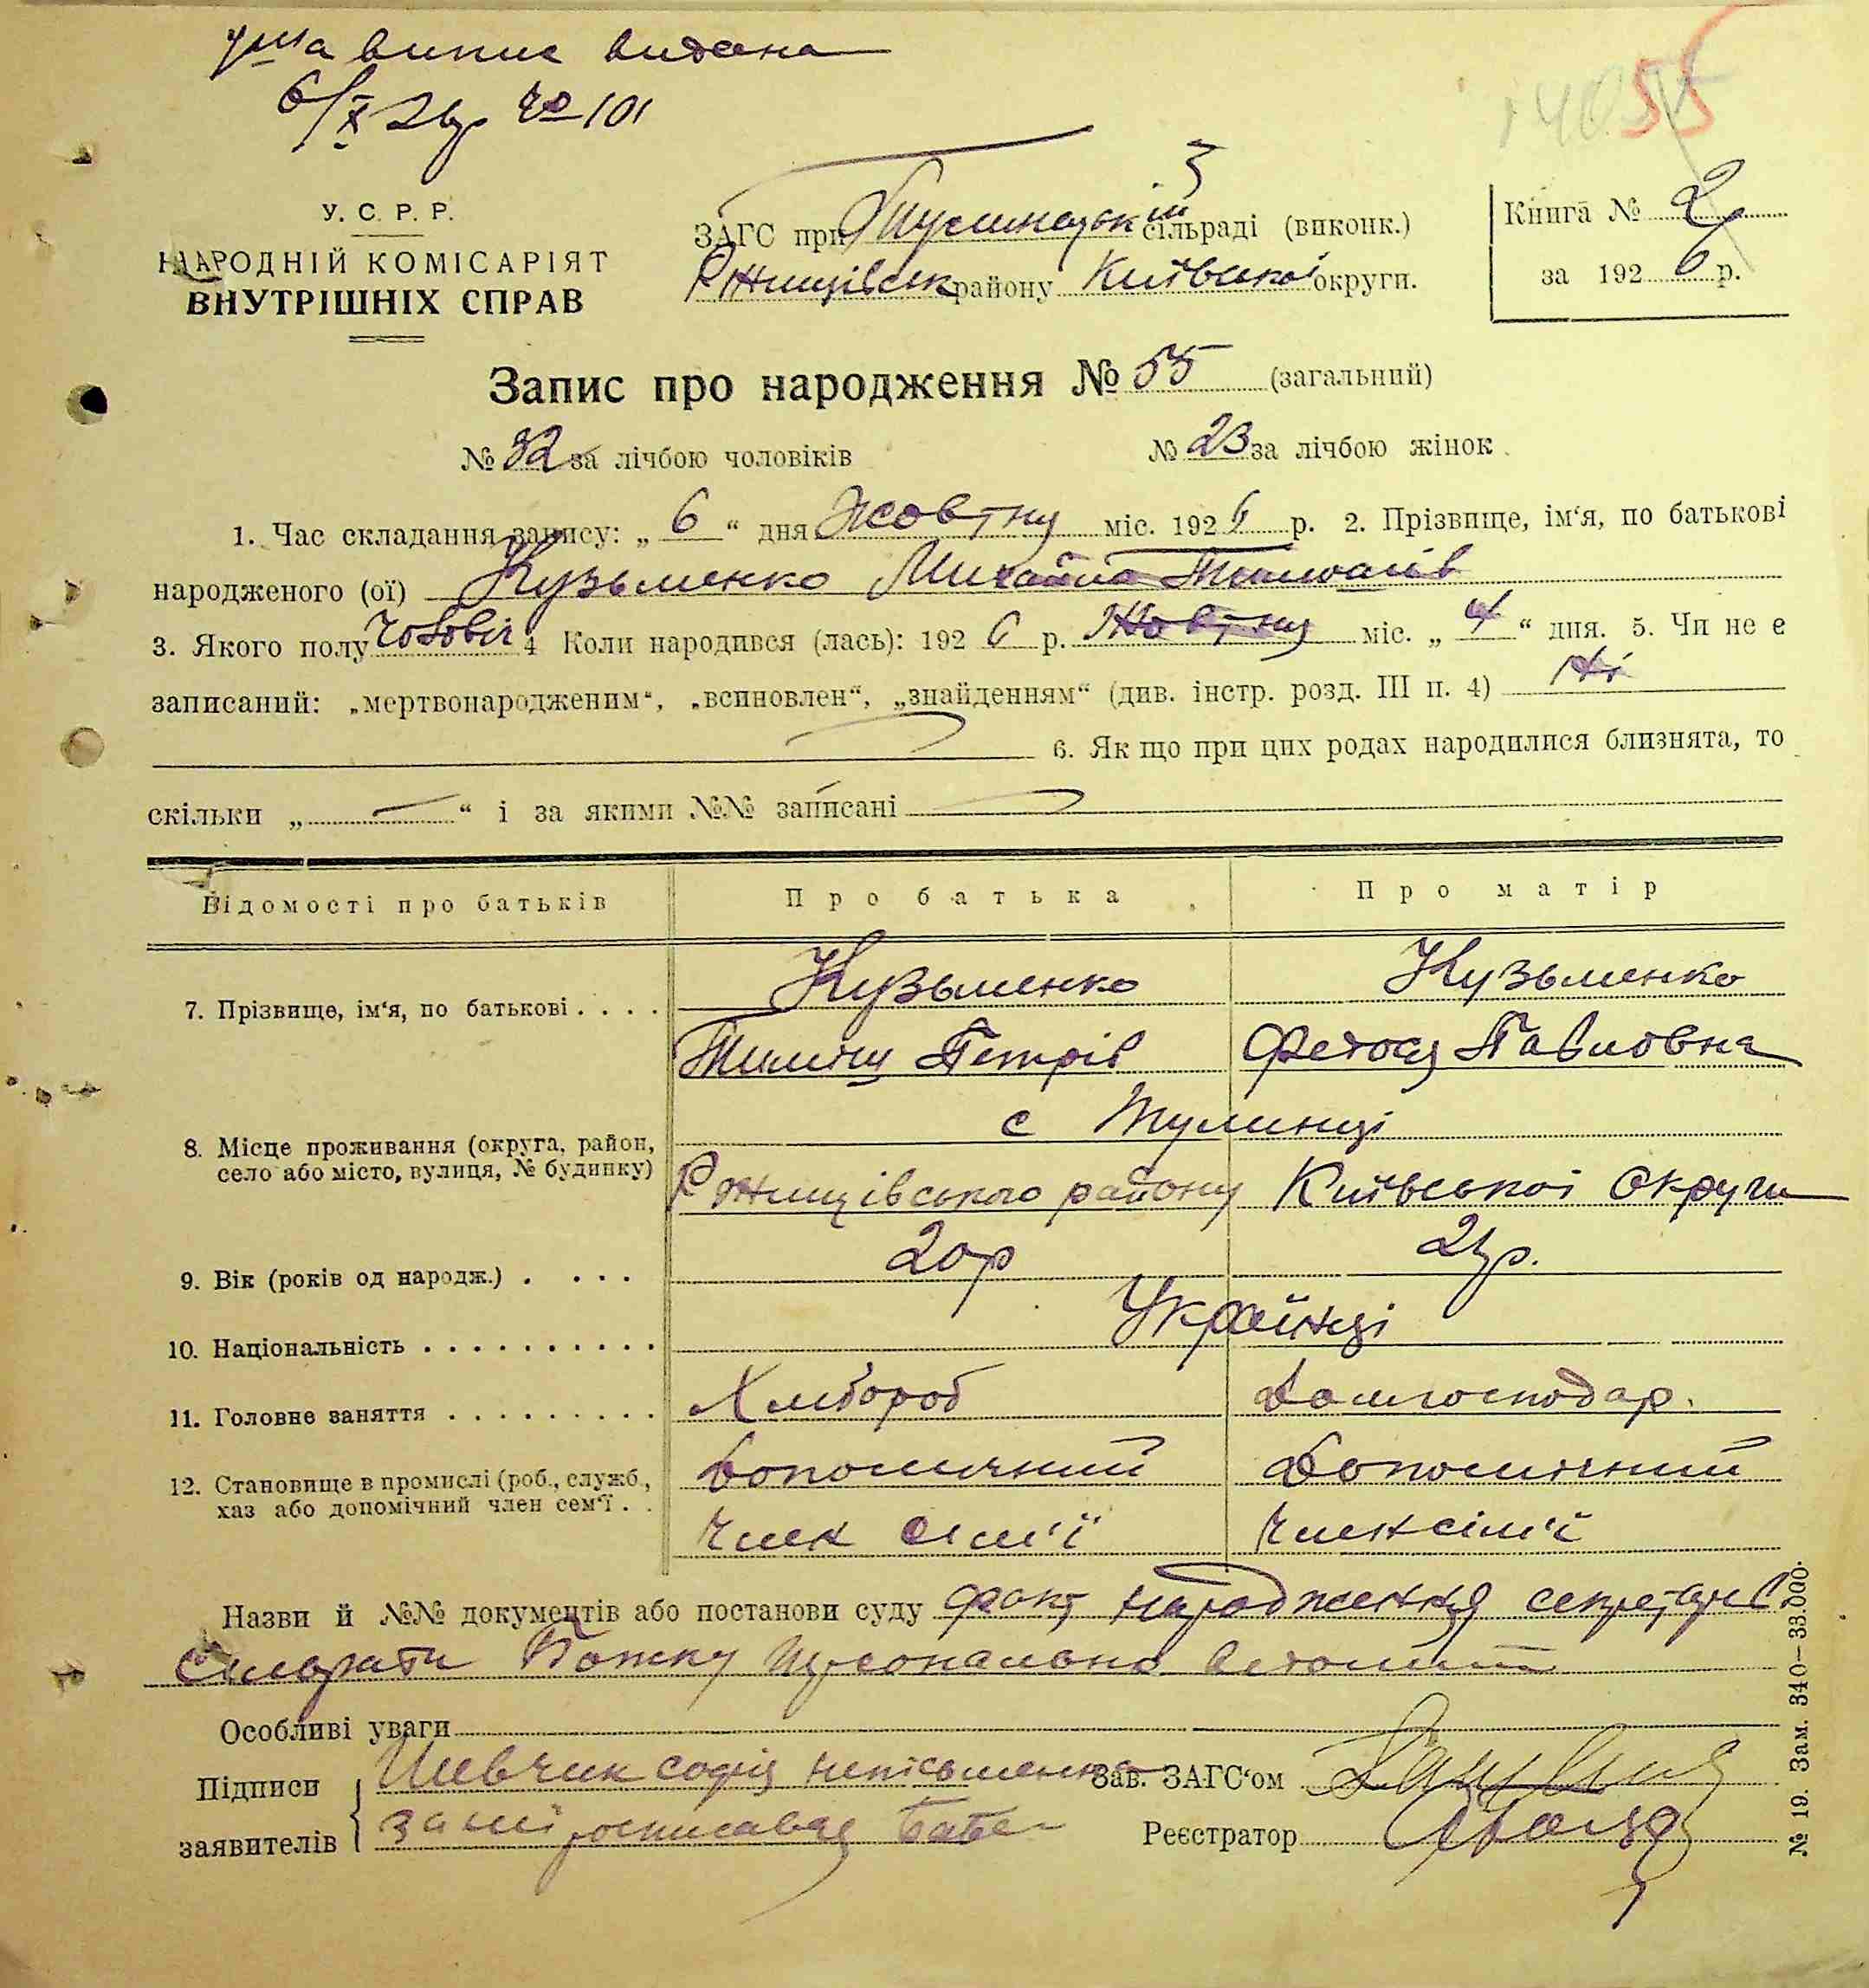 випис видана
6/X 26р № 101
55
У. С. Р. Р.
НАРОДНІЙ КОМІСАРІЯТ
ВНУТРІШНІХ СПРАВ
ЗАГС при сільраді (виконк.)
Ржищівськ району Київської округи.
Книга № 2
за 1926 р.
Запис про народження № 55 (загальний)
№ 32 за лічбою чоловіків № 23 за лічбою жінок
1. Час складання запису: „ 6 “ дня Жовтня міс. 1926 р. 2. Прізвище, ім‘я, по батькові
народженого (ої) Кузьменко Михайло
3. Якого полу чоловіч 4 Коли народився (лась): 1926 р. Жовтня міс. „ 4 “ дня. 5. Чи не є
записаний: „мертвонародженим“, „всиновлен“, „знайденням“ (див. інстр. розд. III п. 4) Ні
6. Як що при цих родах народилися близнята, то
скільки „ — “ і за якими №№ записані —
Відомості про батьків Про батька Про матір
7. Прізвище, ім‘я, по батькові . . . . Кузьменко Кузьменко
Петрів Федося Павловна
8. Місце проживання (округа, район, село або місто, вулиця, № будинку) с Тулинці
Ржищівського району Київської Округи
9. Вік (років од народж.) . . . . 20р 21р.
10. Національність . . . . . . . . . . Українці
11. Головне заняття . . . . . . . . . Хлібороб Домгосподар.
12. Становище в промислі (роб., служб., Допомічний Допомічний
хаз або допомічний член сем‘ї . . Член сімʼї Член сімʼї
Назви й №№ документів або постанови суду факт народження секретарю
сільради Божку персонально
Особливі уваги
Підписи заявителів Шевчик Софія неписьменна
за неї росписався
Зав. ЗАГС‘ом
Реєстратор
№ 19. Зам. 340—33.000.